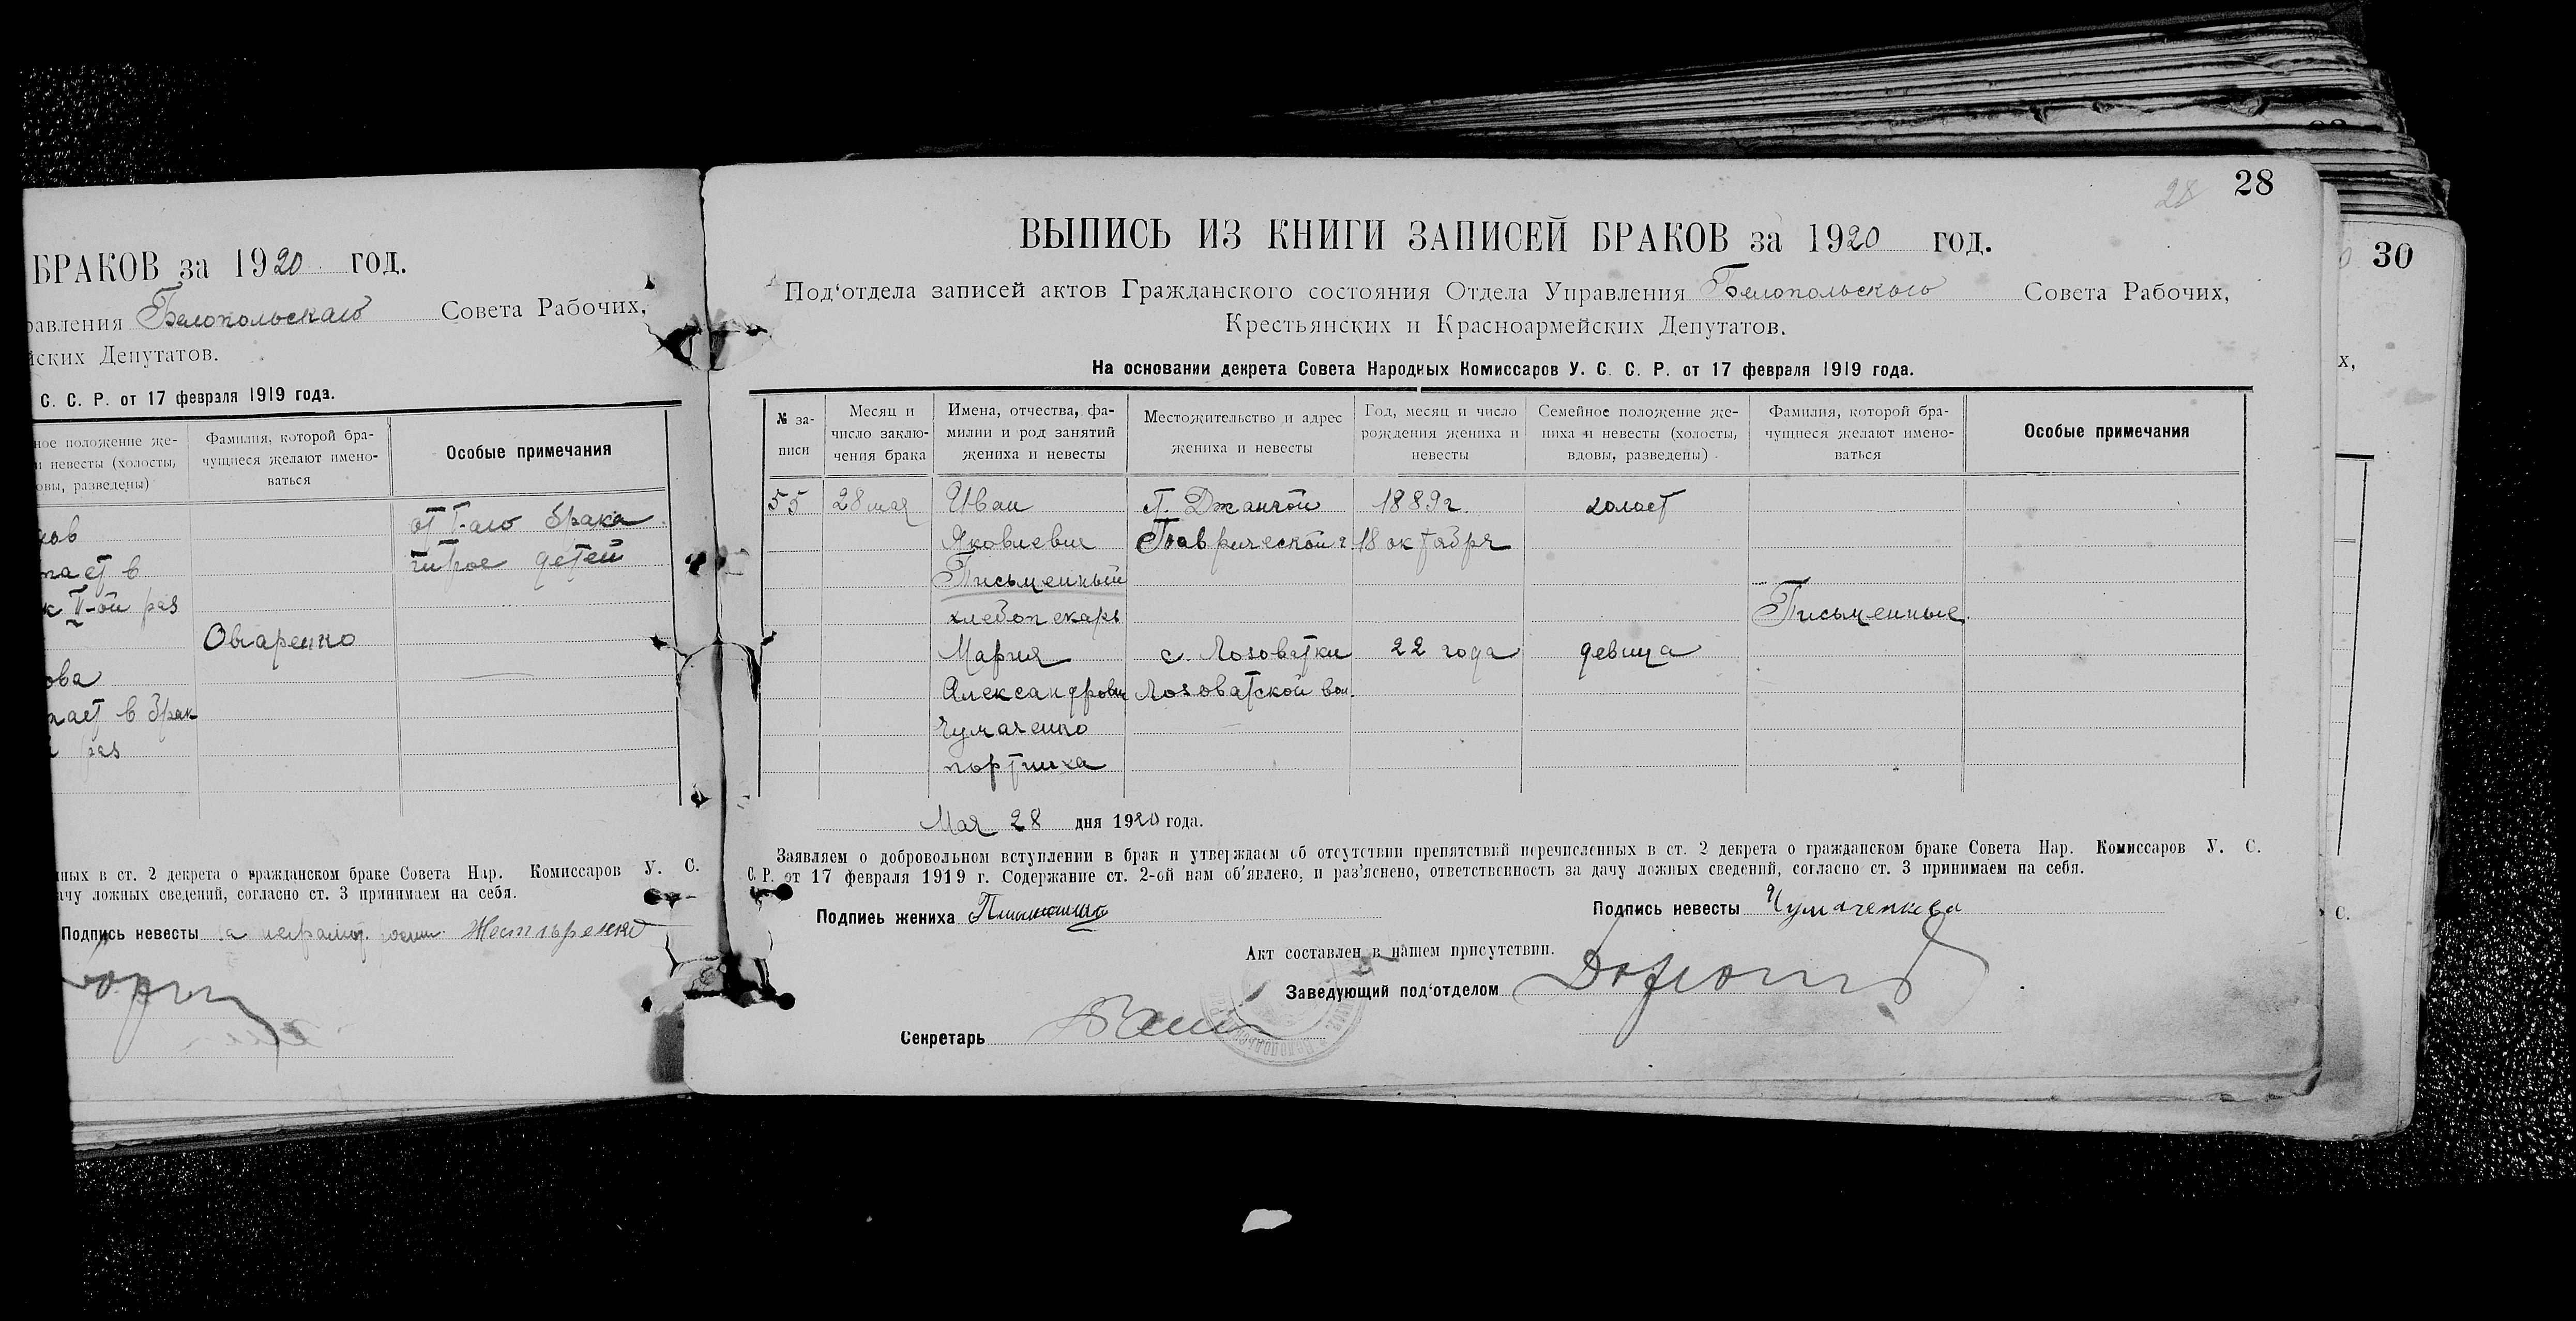 БРАКОВ за 1920 год.
равления Белопольскаго Совета Рабочих,
йских Депутатов.
С. С. Р. от 17 февраля 1919 года.
ное положение же-
и невесты (холосты,
овы, разведены)
Фамилия, которой бра-
чущиеся желают имено-
ваться
Особые примечания
от I-аго брака
трое детей
II-ой раз
Овчаренко
ова
ает в брак
раз
нных в ст. 2 декрета о гражданском браке Совета Нар. Комиссаров У. С.
ачу ложных сведений, согласно ст. 3 принимаем на себя.
Подпись невесты
28
28
ВЫПИСЬ ИЗ КНИГИ ЗАПИСЕЙ БРАКОВ за 1920 год.
Под'отдела записей актов Гражданского состояния Отдела Управления Белопольского Совета Рабочих,
Крестьянских и Красноармейских Депутатов.
На основании декрета Совета Народных Комиссаров У. С. С. Р. от 17 февраля 1919 года.
№ за-
писи
Месяц и
число заклю-
чения брака
Имена, отчества, фа-
милии и род занятий
жениха и невесты
Местожительство и адрес
жениха и невесты
Год, месяц и число
рождения жениха и
невесты
Семейное положение же-
ниха и невесты (холосты,
вдовы, разведены)
Фамилия, которой бра-
чущиеся желают имено-
ваться
Особые примечания
55 28 мая Иван г. Джанкой 1889 г. холост
Яковлевич Таврической г. 18 октября
Письменный
хлебопекарь Письменные
Мария с. Лозоватки 22 года девица
Александровн Лозоватской вол.
Чумаченко
портниха
Мая 28 дня 1920 года.
Заявляем о добровольном вступлении в брак и утверждаем об отсутствии препятствий перечисленных в ст. 2 декрета о гражданском браке Совета Нар. Комиссаров У. С.
С. Р. от 17 февраля 1919 г. Содержание ст. 2-ой нам об'явлено, и раз'яснено, ответственность за дачу ложных сведений, согласно ст. 3 принимаем на себя.
Подпись жениха
Подпись невесты Чумаченкова
Акт составлен в нашем присутствии.
Заведующий под'отделом
Секретарь
30
х,
С.